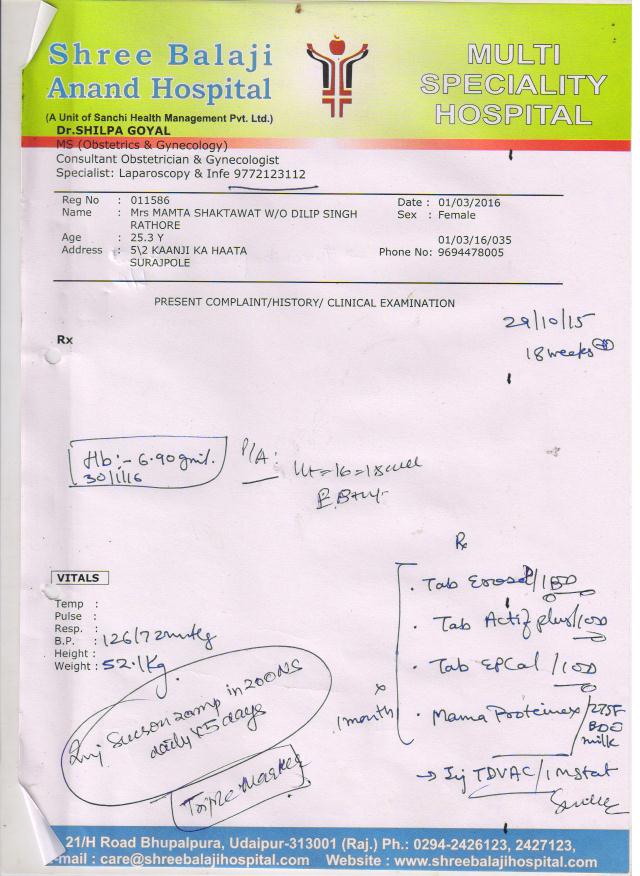 Shree Balaji
Anand Hospital
(A Unit of Sanchi Health Management Pvt. Ltd.)
MULTI
SPECIALITY
HOSPITAL
Dr.SHILPA GOYAL
MS (Obstetrics & Gynecology)
Consultant Obstetrician & Gynecologist
Specialist: Laparoscopy & Infe 9772123112
Reg No : 011586
Date : 01/03/2016
Name : Mrs MAMTA SHAKTAWAT W/O DILIP SINGH
Sex : Female
RATHORE
Age : 25.3 Y
01/03/16/035
Address : 5\2 KAANJI KA HAATA
Phone No: 9694478005
SURAJPOLE
PRESENT COMPLAINT/HISTORY/ CLINICAL EXAMINATION
29/10/15
Rx
18 weeks
Hb:- 6.90 gm%
30/1/16
P/A:
Ut = 16 = 18 week
Rx
Tab /1OD
Tab Actif plus/1OD
Tab EPCal /1OD
Mama Proteinex/2TSF
BD c
milk
x
1month
→ Inj TDVAC/IM stat
VITALS
Temp :
Pulse :
Resp. :
B.P. : 126/72mmHg
Height :
Weight : 52.1Kg
Inj 2amp in 200NS
daily x 5 days
Triple Marker
21/H Road Bhupalpura, Udaipur-313001 (Raj.) Ph.: 0294-2426123, 2427123,
-mail : care@shreebalajihospital.com Website : www.shreebalajihospital.com